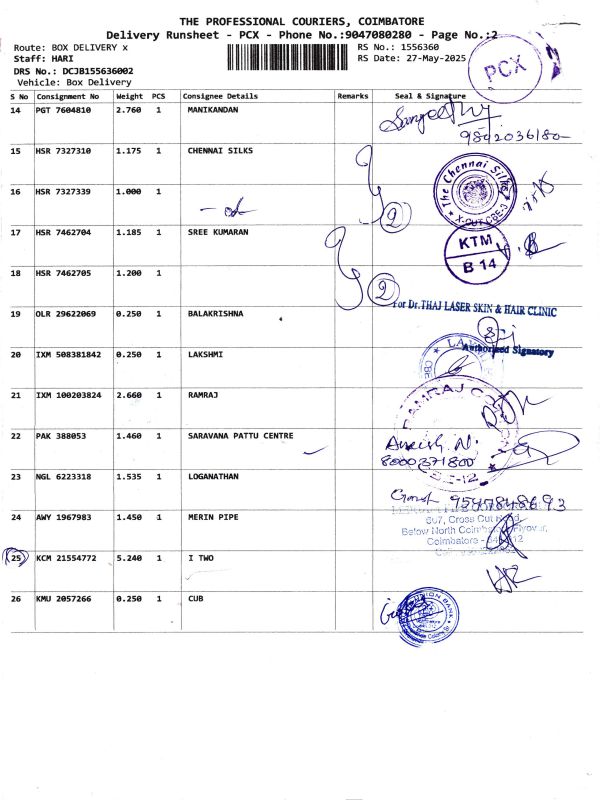 THE PROFESSIONAL COURIERS, COIMBATORE
Delivery Runsheet - PCX - Phone No.:9047080280 - Page No.:2
Route: BOX DELIVERY x RS No.: 1556360
Staff: HARI RS Date: 27-May-2025
DRS No.: DCJB155636002
Vehicle: Box Delivery
PCX
S No Consignment No Weight PCS Consignee Details Remarks Seal & Signature
14 PGT 7604810 2.760 1 MANIKANDAN
9842036180
15 HSR 7327310 1.175 1 CHENNAI SILKS
The Chennai Silks
16 HSR 7327339 1.000 1
2
17 HSR 7462704 1.185 1 SREE KUMARAN
KTM
B 14
18 HSR 7462705 1.200 1
2
19 OLR 29622069 0.250 1 BALAKRISHNA
For Dr.THAJ LASER SKIN & HAIR CLINIC
Authorised Signatory
20 IXM 508381842 0.250 1 LAKSHMI
21 IXM 100203824 2.660 1 RAMRAJ
RAMRAJ CO
22 PAK 388053 1.460 1 SARAVANA PATTU CENTRE
8000371800
23 NGL 6223318 1.535 1 LOGANATHAN
9547848693
24 AWY 1967983 1.450 1 MERIN PIPE
Cross Cut
Below North
Coimbatore
25 KCM 21554772 5.240 1 I TWO
26 KMU 2057266 0.250 1 CUB